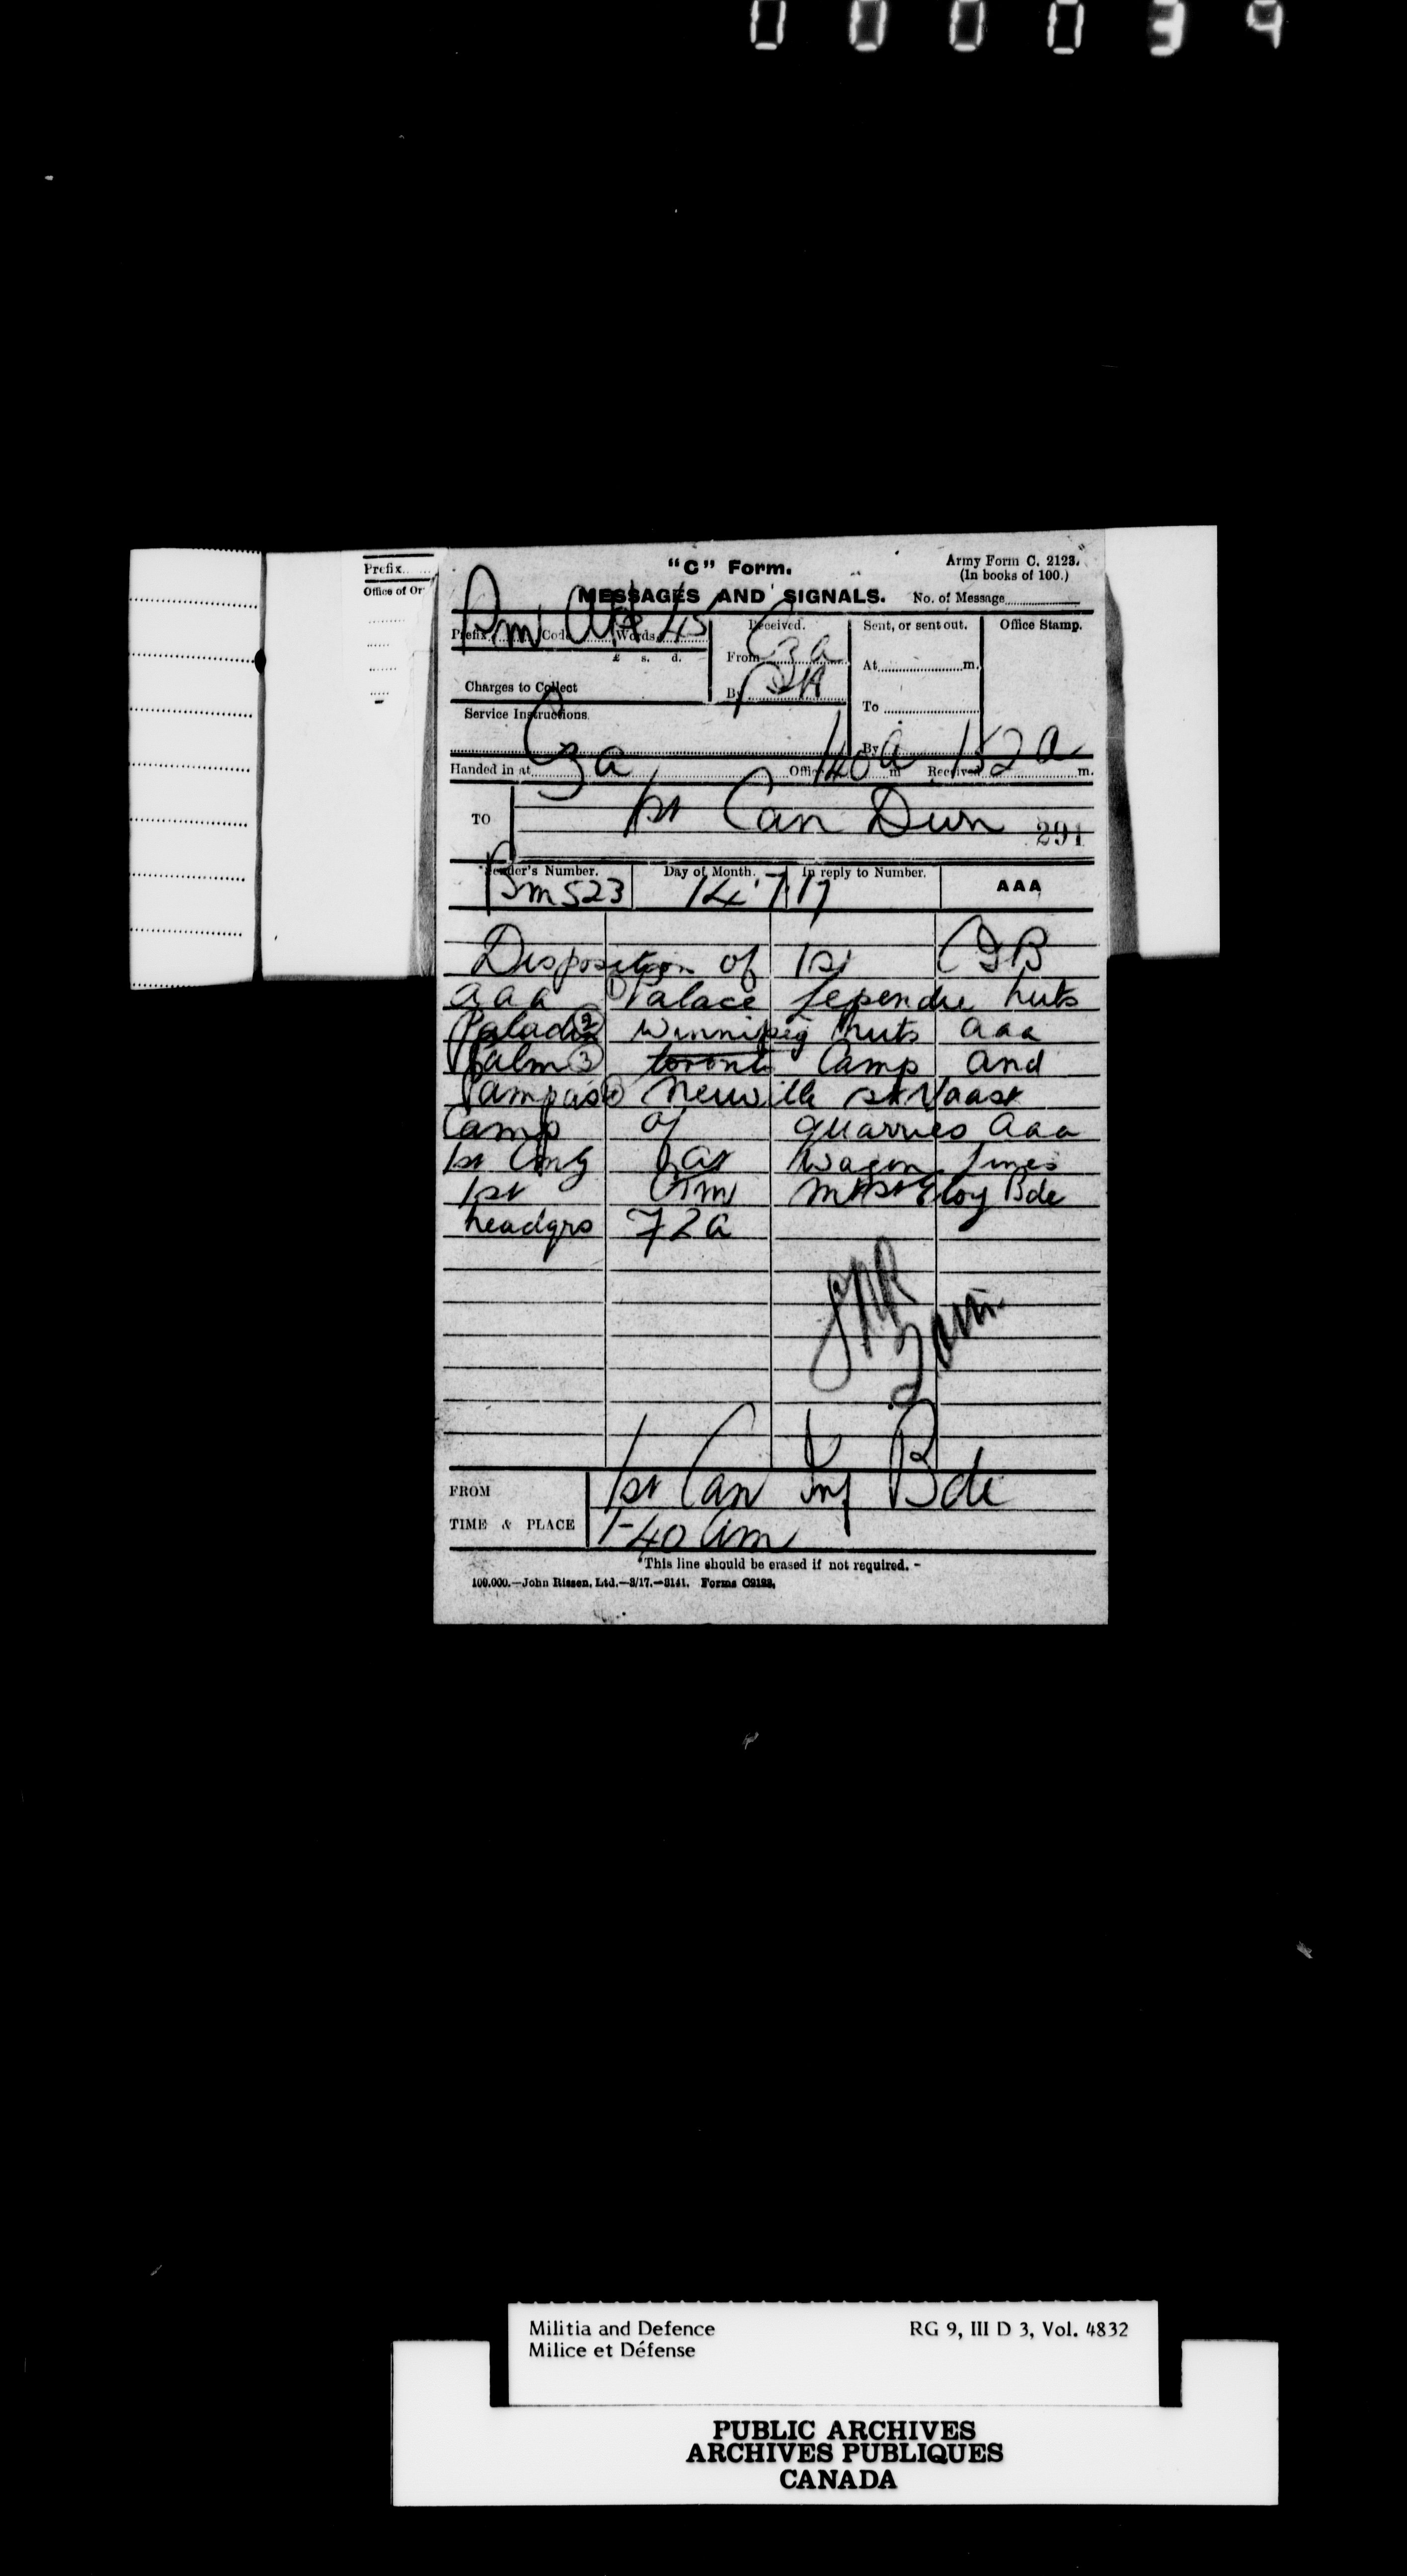 000034
Prefix
Office of Or
"C" Form.
Army Form C. 2123.
(In books of 100.)
MESSAGES AND SIGNALS.
No. of Message
Prefix Sm Code Words 45
Received.
Sent, or sent out.
Office Stamp.
£ s. d.
From Cza
At m.
Charges to Collect
By
To
Service Instructions.
By
Cza
Handed in at Office 140 a m Received 152 a m.
TO 1st Can Divn
291
Sender's Number.
Day of Month.
In reply to Number.
AAA
Bm 523 14.7.17
Disposition of 1st CIB
aaa (1) Palace Lependu huts
Paladin (2) Winnipeg huts aaa
Palm (3) toronto Camp and
Pampas (4) Neuville St Vaast
Camp of quarries aaa
1st Cmg Wagon Lines
1st Mt St Eloy Bde
headqrs 72a
FROM 1st Can Inf Bde
TIME & PLACE 1-40 am
*This line should be erased if not required.
100,000.—John Rissen, Ltd.—8/17.—3141. Forms C2123.
Militia and Defence
Milice et Défense
RG 9, III D 3, Vol. 4832
PUBLIC ARCHIVES
ARCHIVES PUBLIQUES
CANADA